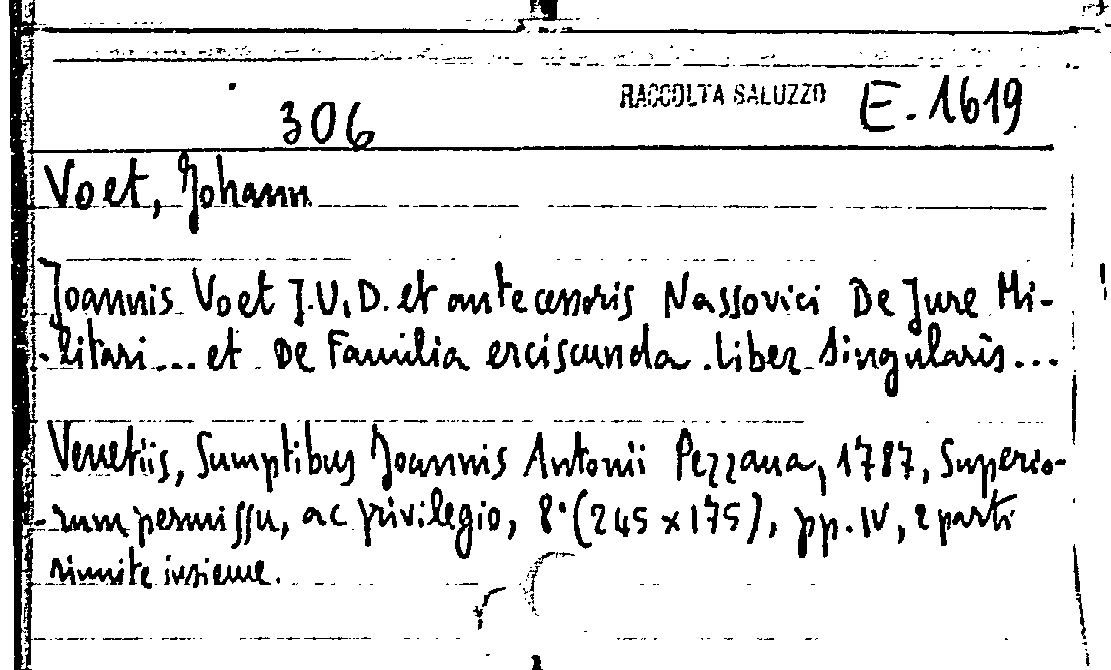 306 RACCOLTA SALUZZO E. 1619
Voet, Johann
Joannis Voet J.U.D. et antecessoris Nassovici De Jure Mi-
-litari... et De Familia erciscunda. Liber Singularis...
Venetiis, Sumptibus Joannis Antonii Pezzana, 1787, Superio-
-rum permissu, ac privilegio, 8° (245 x 175), pp. IV, 2 parti
riunite insieme.